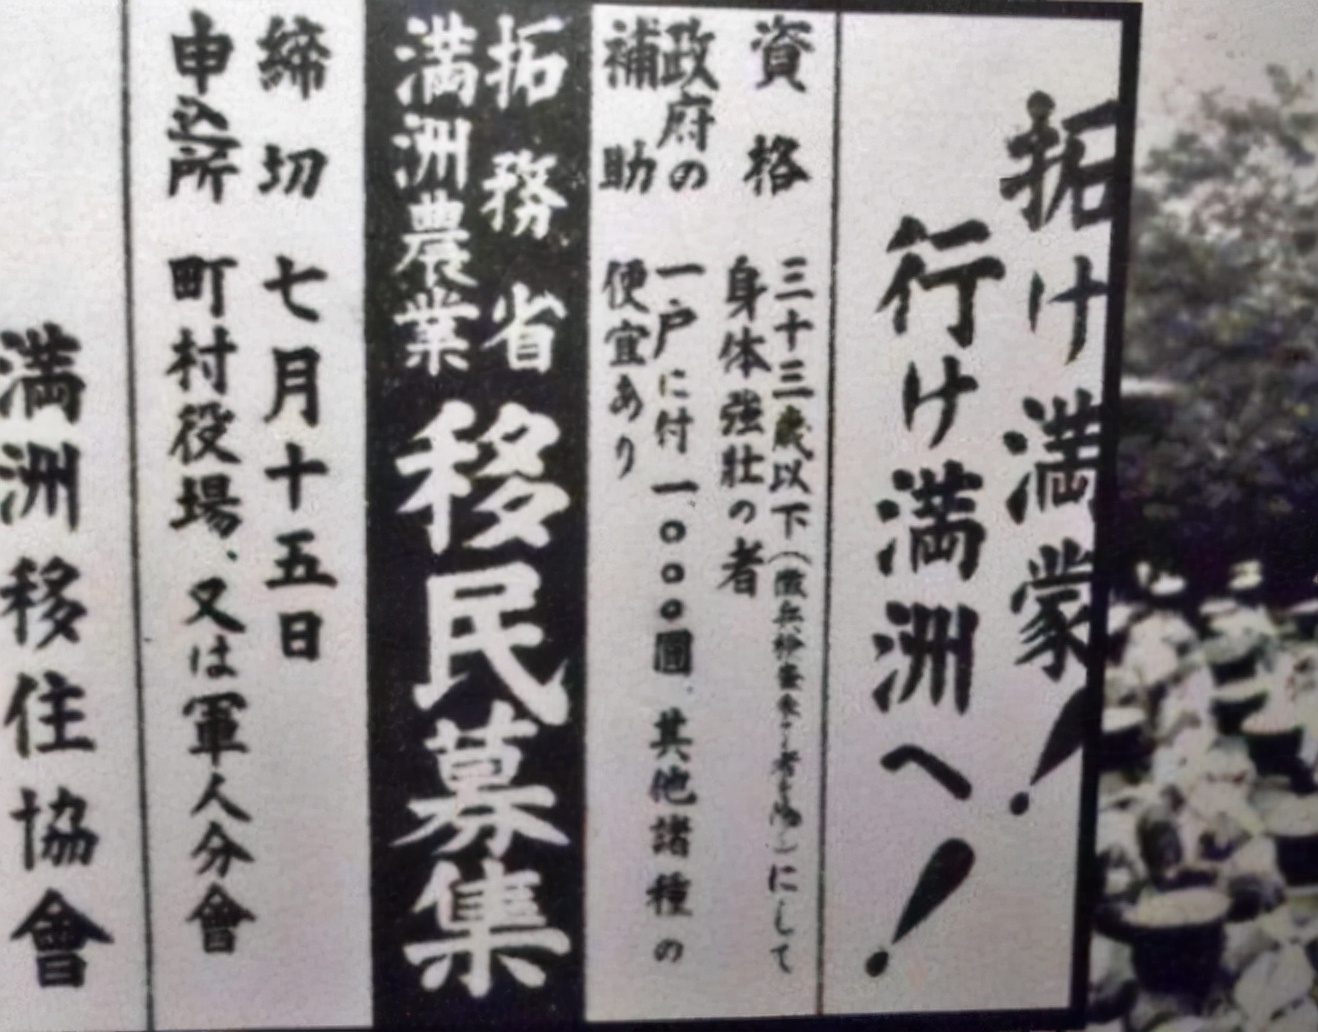 拓け満蒙！
行け満洲へ！
資格
三十三歳以下（徴兵検査者を）にして
身体強壮の者
政府の
補助
一戸に付一、〇〇〇圓、其他諸種の
便宜あり
拓務省
満洲農業
移民募集
締切 七月十五日
申込所 町村役場、又は軍人分會
満洲移住協會